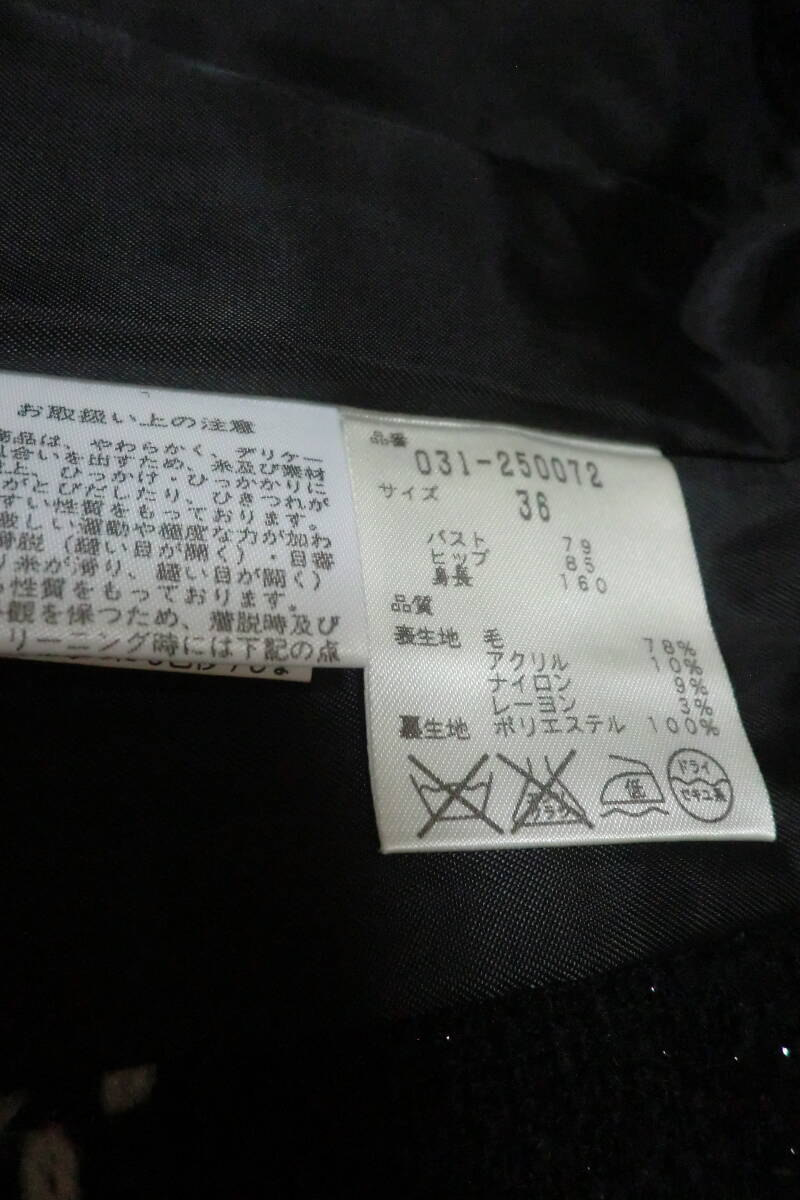 お取扱い上の注意
商品は、やわらかく、デリケー
合いを出すため、糸及び素材
上、ひっかけ・ひっかかりに
がとびだしたり、ひきつれが
すい性質をもっております。
激しい運動や極度な力が加わ
滑脱（縫い目が開く）・目寄
り糸が滑り、縫い目が開く）
性質をもっております。
観を保つため、着脱時及び
リーニング時には下記の点
品番
031-250072
サイズ 36
バスト 79
ヒップ 85
身長 160
品質
表生地 毛 78%
アクリル 10%
ナイロン 9%
レーヨン 3%
裏生地 ポリエステル 100%
エンソ
サラシ
低
ドライ
セキユ系